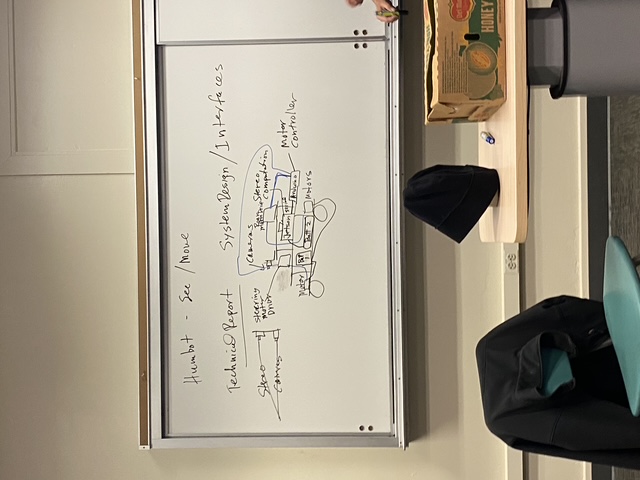 Humbot - See / Move
Technical Report
System Design / Interfaces
Cameras
Stereo
Cameras
Steering
Motor
Driver
Stereo
computation
Jetson
Arduino
Motor
Controller
Motor
Batt
1
Batt 2
Motors
Del Monte
HONEY